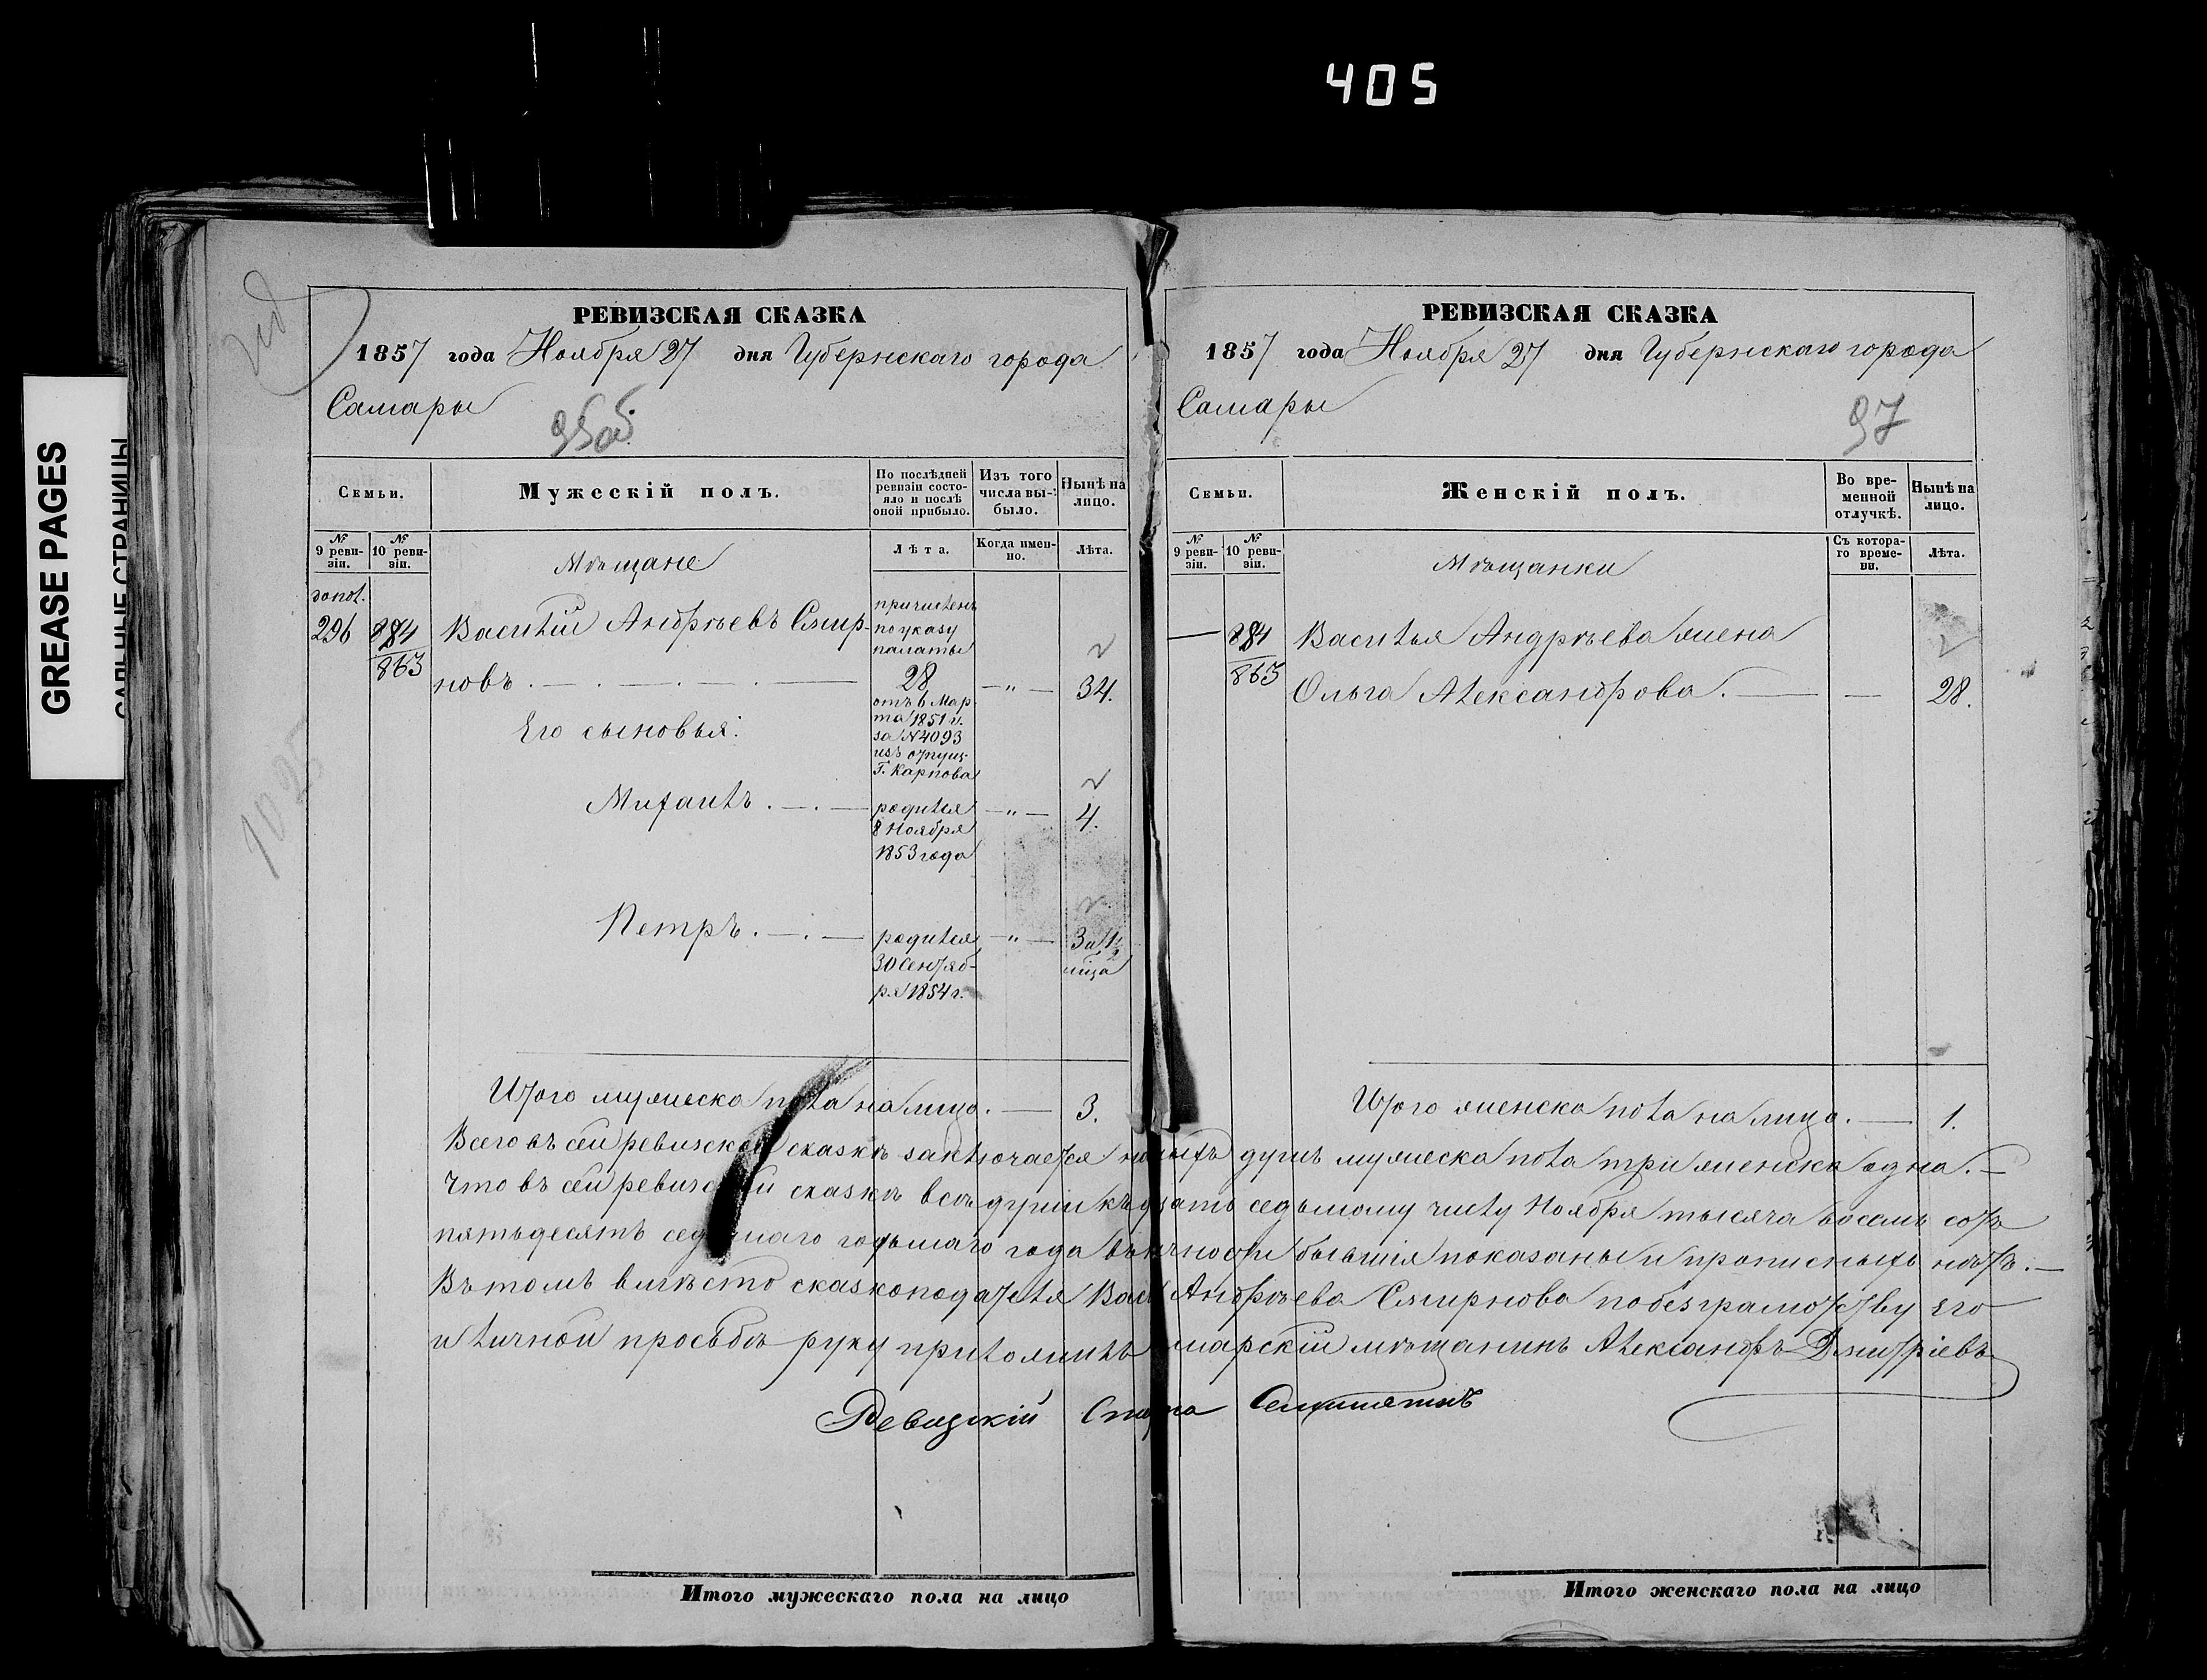 405
GREASE PAGES
САЛЬНЫЕ СТРАНИЦЫ
РЕВИЗСКАЯ СКАЗКА
1857 года Ноября 27 дня Губернскаго города
Самары
Семьи.
Мужескій полъ.
По послѣдней ревизіи состояло и послѣ оной прибыло.
Изъ того числа выбыло.
Нынѣ на лицо.
№ 9 ревизіи.
№ 10 ревизіи.
Мѣщане
Лѣта.
Когда именно.
Лѣта.
допол.
296
884
863
Василій Андрѣевъ Смир-
новъ
причисленъ
по указу
палаты
28
отъ 6 Мар-
та 1851 г.
за №4093
изъ отпущ.
Г. Карпова
34.
Его сыновья:
Михаилъ
родился
8 Ноября
1853 года
4.
Петръ
родился
30 Сентяб-
ря 1854 г.
3 и 1/2
мѣца
Итого мужеска пола на лицо. 3.
РЕВИЗСКАЯ СКАЗКА
1857 года Ноября 27 дня Губернскаго города
Самары
97
Семьи.
Женскій полъ.
Во временной отлучкѣ.
Нынѣ на лицо.
№ 9 ревизіи.
№ 10 ревизіи.
Мѣщанки
Съ котораго времени.
Лѣта.
884
863
Василья Андрѣева жена
Ольга Александрова. 28.
Итого женска пола на лицо. 1.
Всего въ сей ревизской сказкѣ заключается душъ мужеска пола три женска одна.
Что въ сей ревизской сказкѣ всѣ души къ двадцать седьмому числу Ноября тысяча восемь сотъ
пятьдесятъ седьмаго года бывшія показаны и прописныхъ нѣтъ.
Въ томъ вмѣсто сказкоподателя Василья Андрѣева Смирнова по безграмотству его
и личной просьбѣ руку приложилъ Самарскій мѣщанинъ Александръ Дмитріевъ
Ревизскій
Итого мужескаго пола на лицо
Итого женскаго пола на лицо